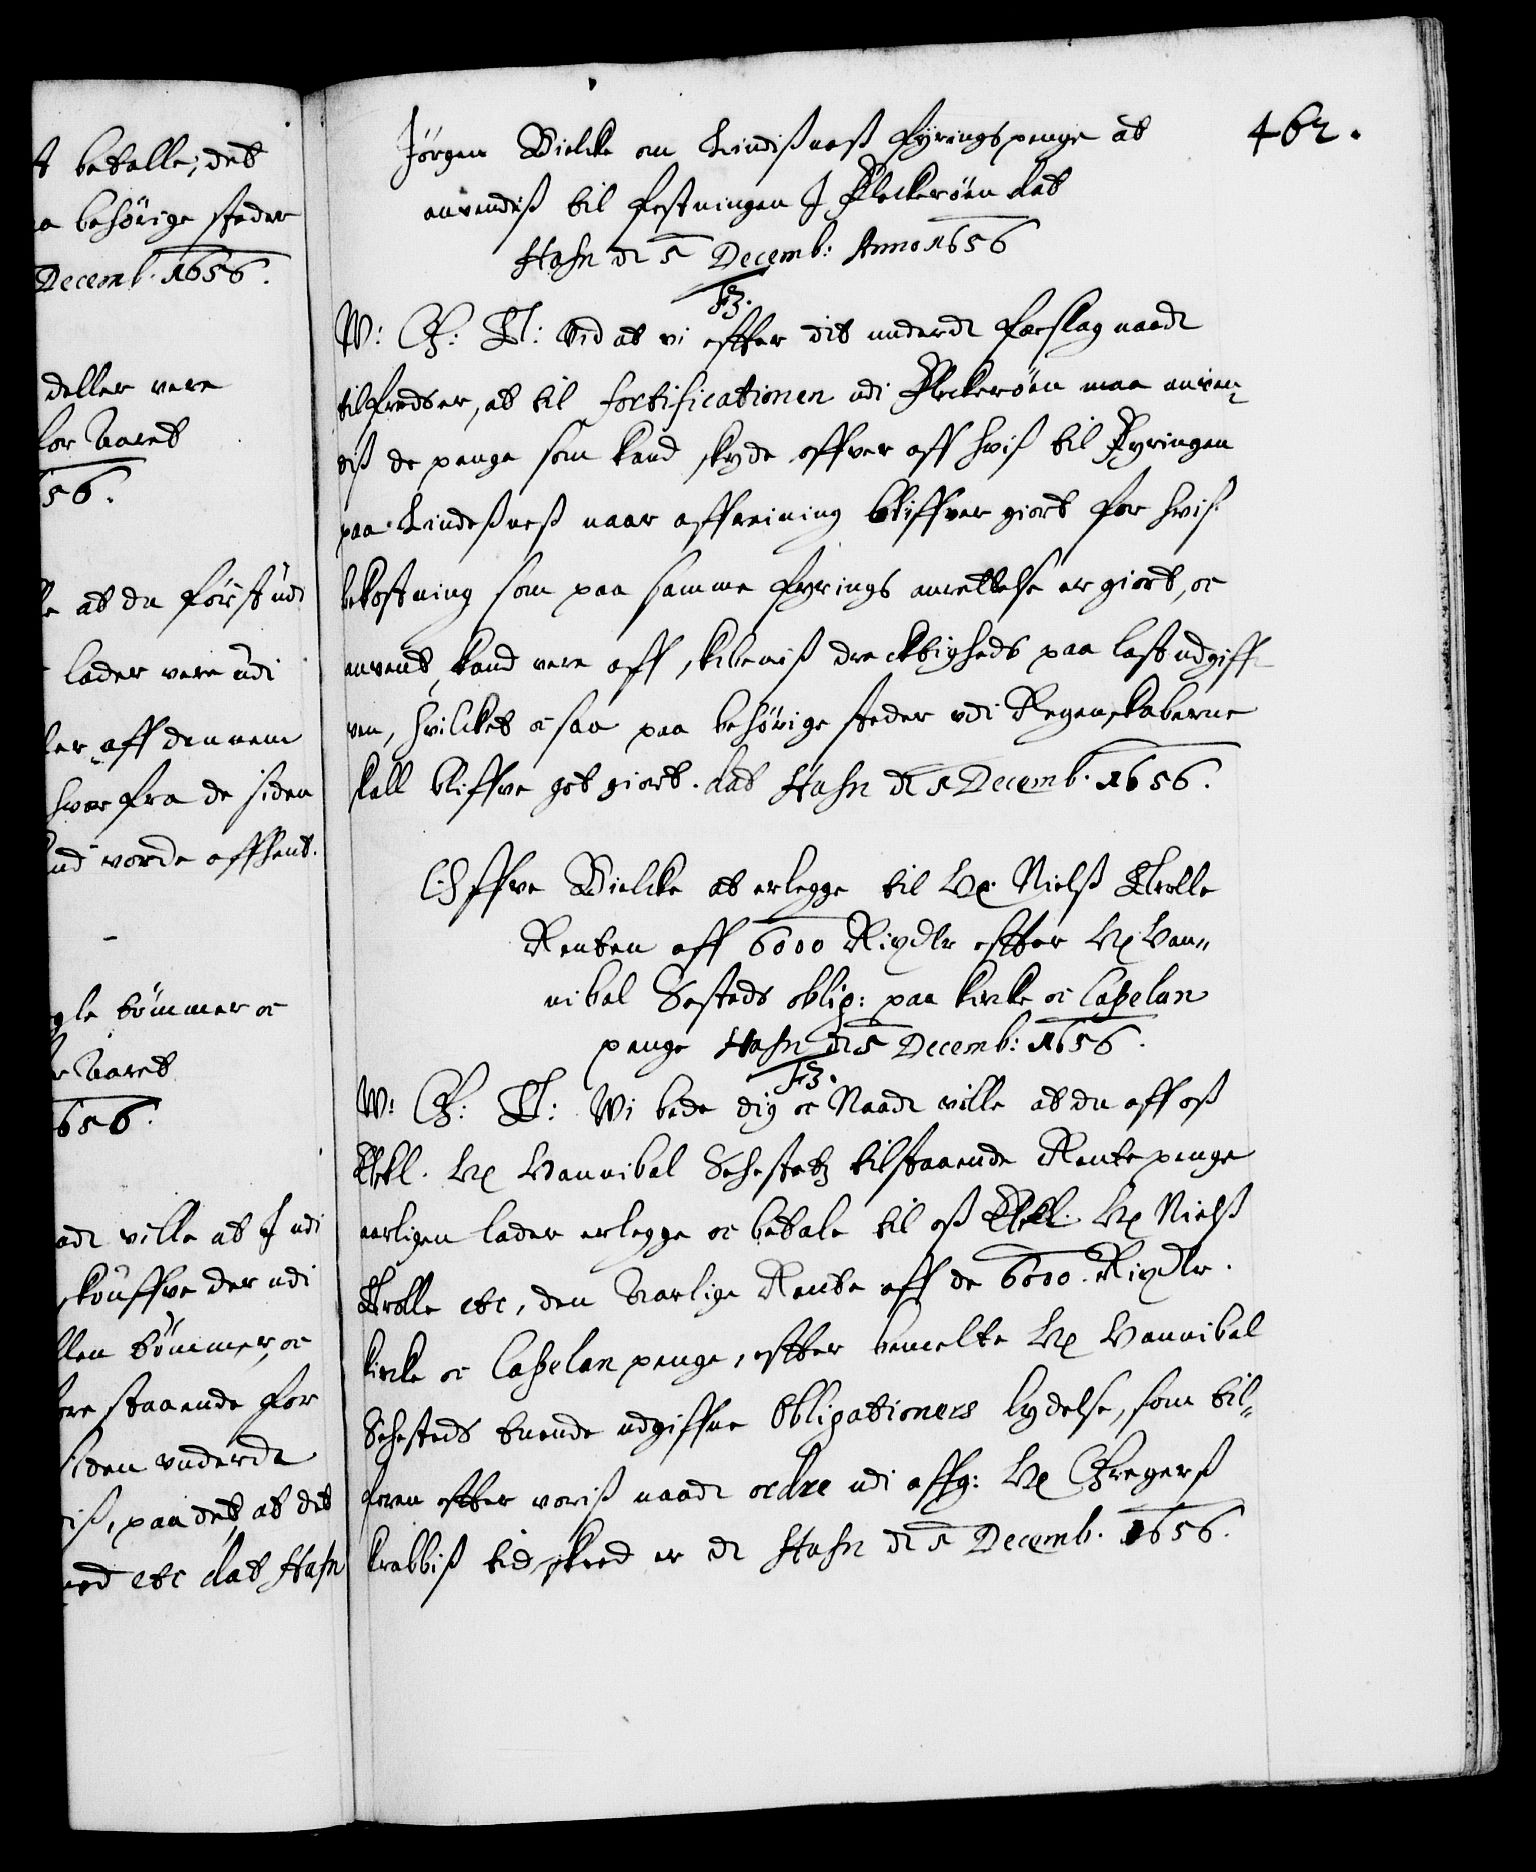 t betalle, det
a behörige steder
Decemb. 1656.
deller vere
for Varet
56.
le at du först udi
lader vere udi
ler aff dennem
hvor fra de siden
ud vorde affhent.
gle tömmer oc
r Varet
656.
ade ville at I udi
skouffve der udi
llen tömmer, oc
ore staaende for
den underde
iß, paa det at det
med etc dat Hafn
462.
Jörgen Bielcke om Lindißneß fyringspenge at
anvendiß til festningen I Fleckeröen dat
Hafn de 5 Decemb: Anno 1656
F3.
W: G: T: Vid at vi effter dit underde forslag naade
tilfredser, at til fortificationen udi Fleckeröen maa anven¬
diß de penge som kand skyde offver aff hviß til Fyringen
paa Lindeßneß naar affreining bliffver giort for hviß
bekostning som paa samme fyrings anrettelse er giort, oc
anvent kand vere aff skibeniß drecktigheds paa last udgiff
ven, hvilcket oc saa paa behörige steder udi Regenskaberne
skall bliffve got giort. dat Hafn de 5 Decemb. 1656.
Offve Bielcke at erlegge til Hr Nielß Trolle
Renten aff 6000 Rixdlr effter Hr Han¬
nibal Sesteds oblig: paa kircke oc Capelan
penge Hafn de 5 Decemb: 1656.
F3.
W: G: T: Wi bede dig oc Naade ville at du aff oß
Elskl. Hr Hannibal Sehstetz tilstaaende Rente penge
aarligen lader erlegge oc betale til oß Elskl. Hr Nielß
Trolle etc, den Aarlige Rente aff de 6000. Rixdlr.
kircke oc Capelan penge, effter bemelte Hr Hannibal
Sehsteds tuende udgiffne Obligationers lydelse, som til¬
foren effter voriß naade ordre udi affg: Hr Gregerß
Krabbiß tid skeed er de Hafn de 5 Decemb. 1656.